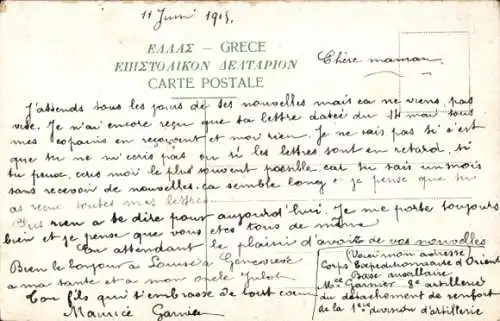 11 Juin 1915.
ΕΛΛΑΣ – GRECE
ΕΠΙΣΤΟΛΙΚΟΝ ΔΕΛΤΑΡΙΟΝ
CARTE POSTALE
Chère maman
J'attends tous les jours de tes nouvelles mais ca ne viens pas
vite. Je n'ai encore reçu que ta lettre datée du 14 mai tous
mes copains en reçoivent et moi rien. Je ne sais pas si s'est
que tu ne m'ecris pas ou si les lettres sont en retard, si
tu peux, ecris moi le plus souvent possible car tu sais un mois
sans recevoir de nouvelles ca semble long, je pense que tu
as reçue toutes mes lettres
Puis rien a te dire pour aujourd'hui. Je me porte toujours
bien et je pense que vous etes tous de même
En attendant le plaisir d'avoir de vos nouvelles
Bien le bonjour a Louise a Genevieve
a ma tante et a mon oncle Jules
Ton fils qui t'embrasse de tout coeur
Maurice Garnier
Voici mon adresse
Corps Expeditionnaire d'Orient
Base auxiliaire
Mce Garnier 8e artillerie
du detachement de renfort
de la 1ere division d'artillerie